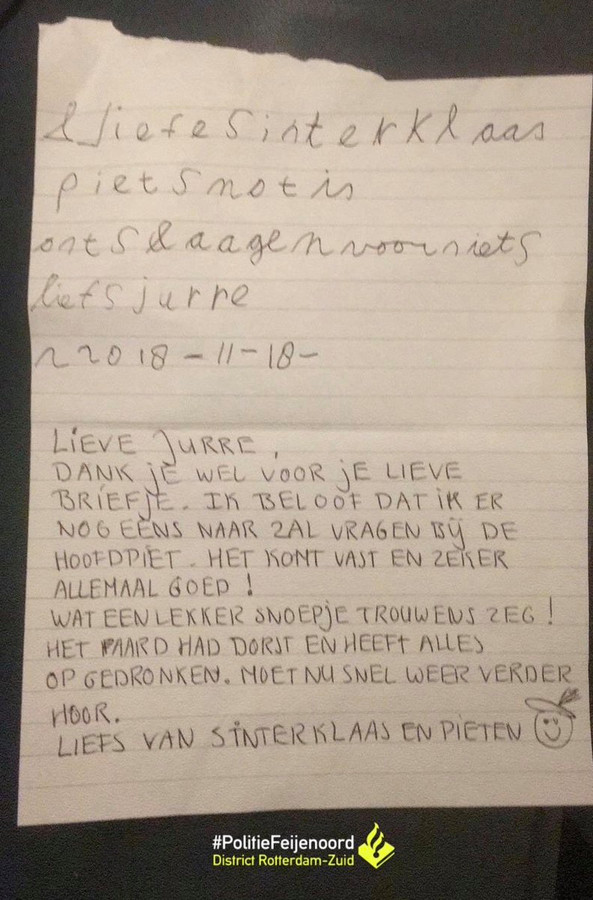 liefe Sinterklaas
piet Snot is
ontSlaagen voor niets
liefs jurre
2018-11-18-
LiEVE JURRE,
DANK jE WEL VOOR jE LIEVE
BRIEFJE. IK BELOOF DAT iK ER
NOG EENS NAAR ZAL VRAGEN BIJ DE
HOOFDPIET. HET KOMT VAST EN ZEKER
ALLEMAAL GOED!
WAT EEN LEKKER SNOEPjE TROUWENS ZEG!
HET PAARD HAD DORST EN HEEFT ALLES
OPGEDRONKEN. MOET NU SNEL WEER VERDER
HOOR.
LIEFS VAN SINTERKLAAS EN PIETEN
#PolitieFeijenoord
District Rotterdam-Zuid